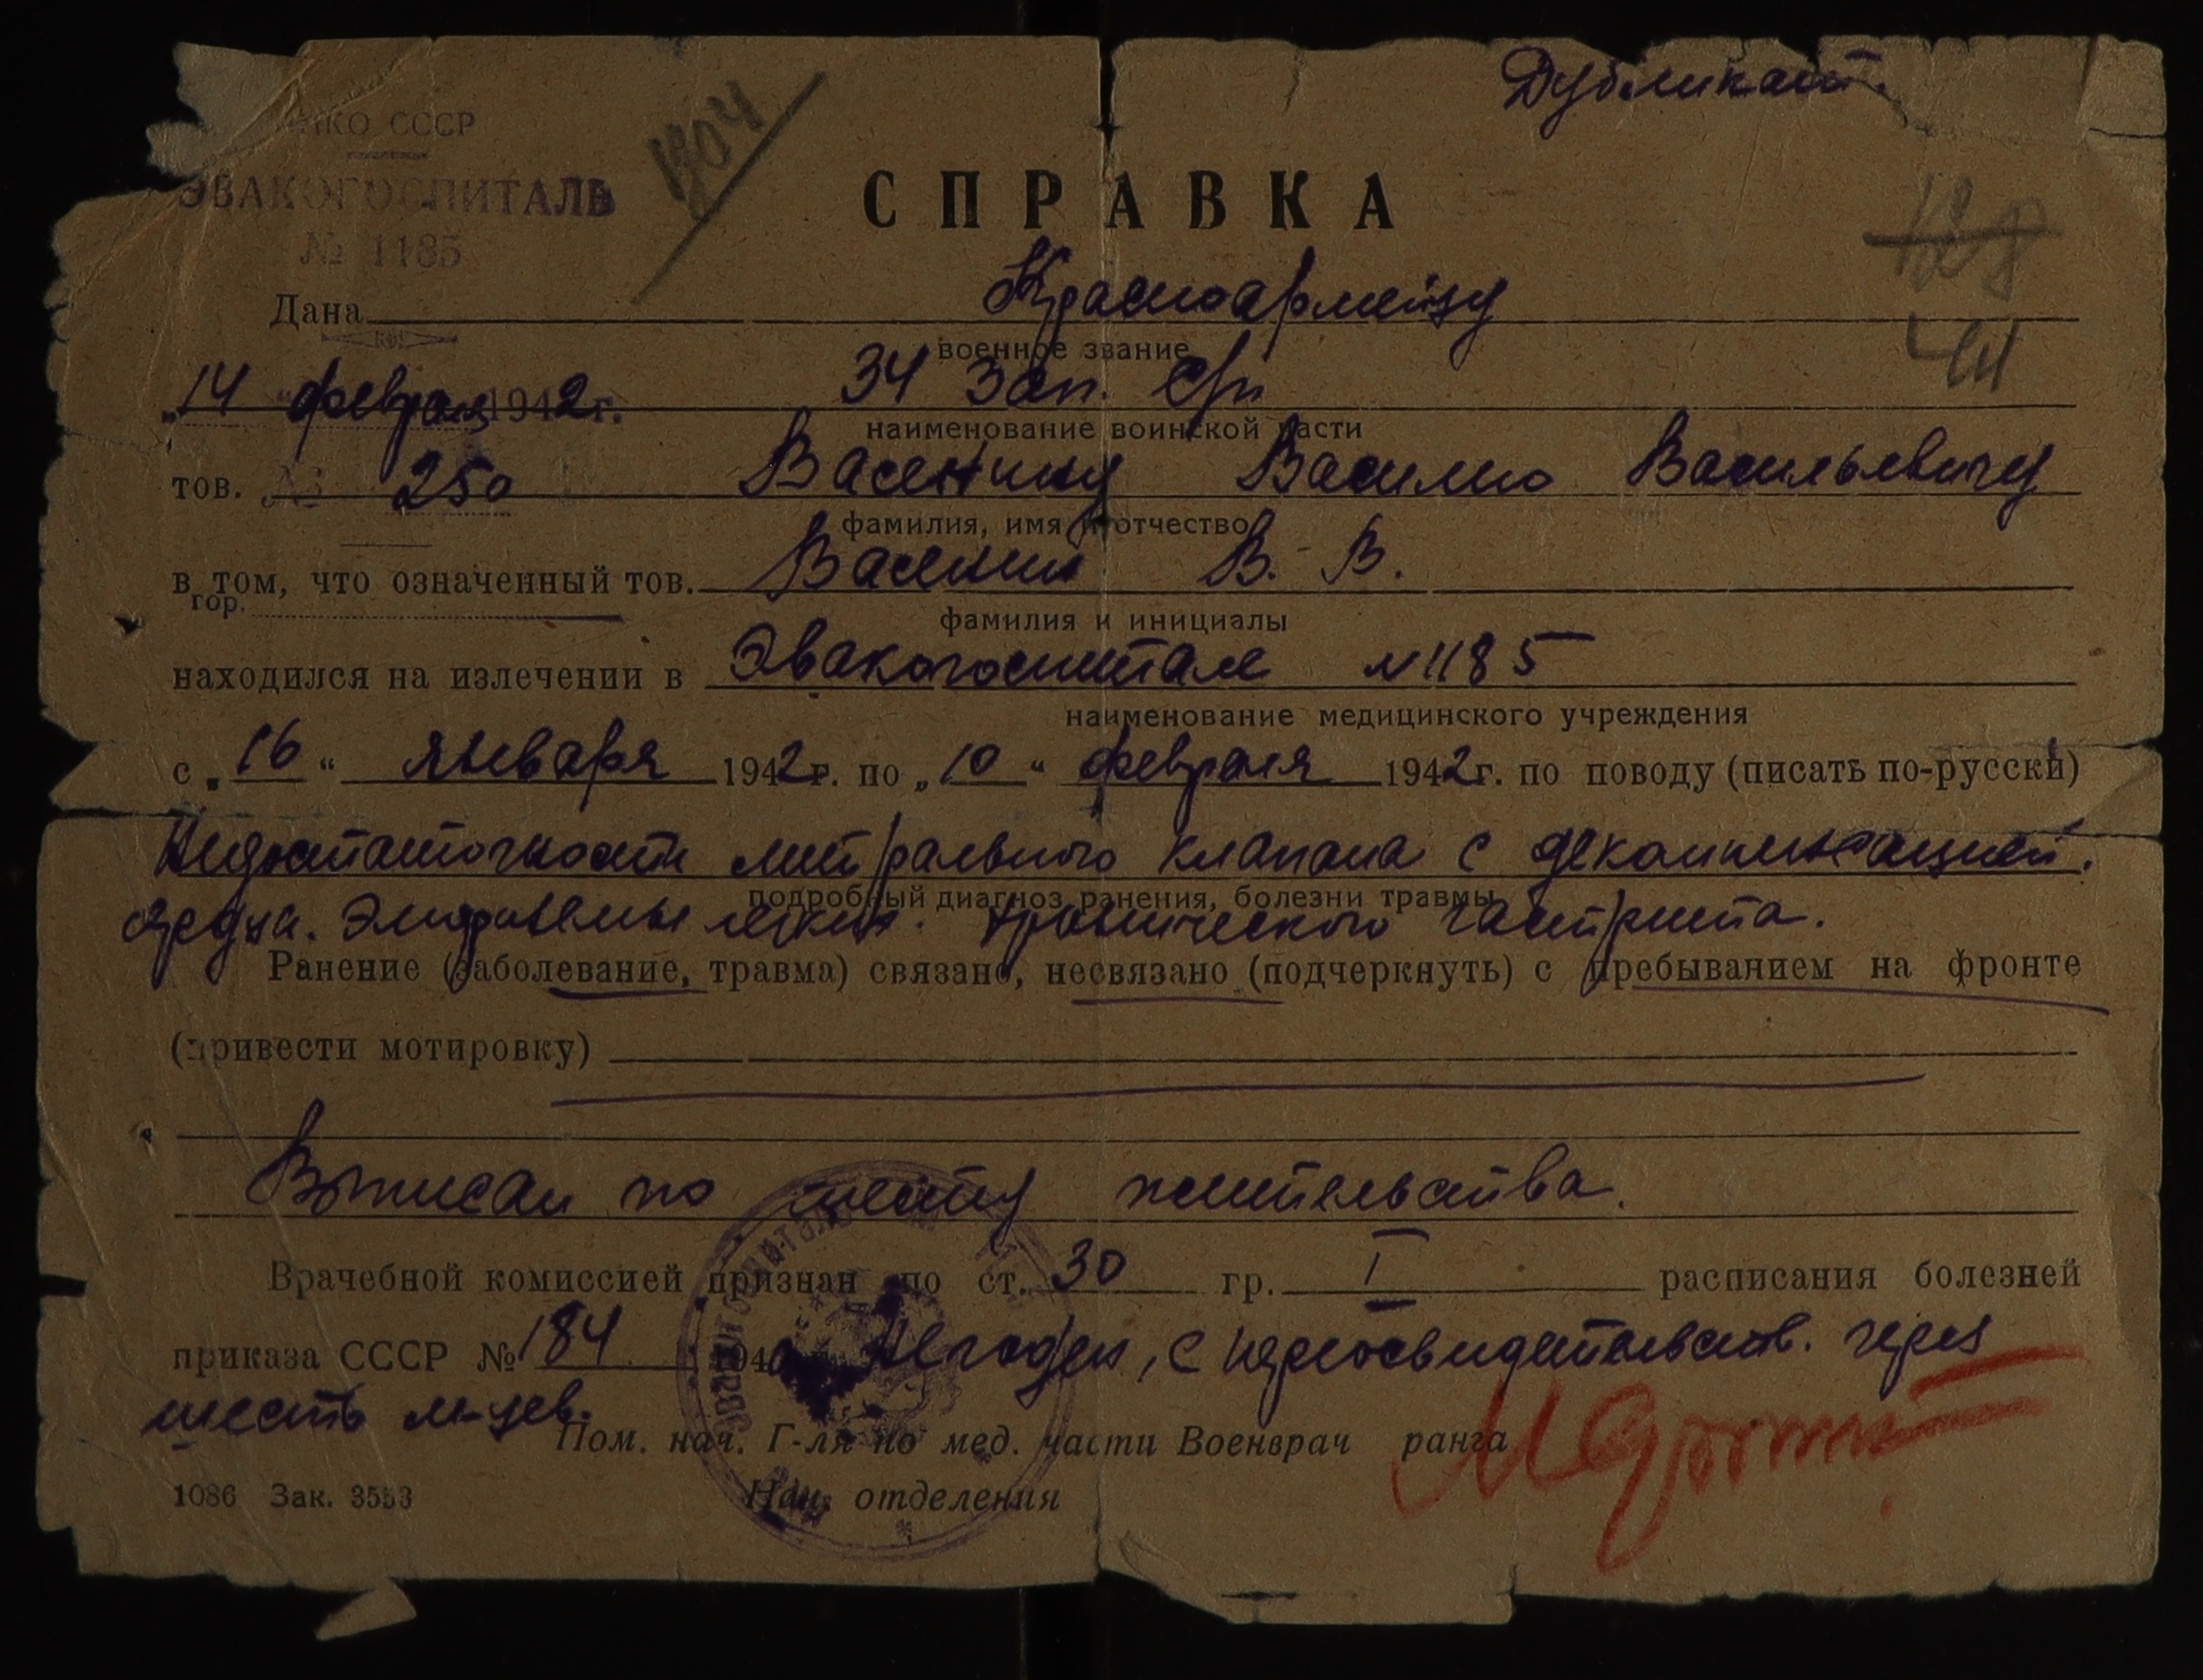 Дубликат.
НКО СССР
1704
ЭВАКОГОСПИТАЛЬ
№ 1185
СПРАВКА
Дана Красноармейцу
военное звание
„14" февраля 1942г. 34 Зап. Сп
наименование воинской части
тов. № 250 Васенину Василию Васильевичу
фамилия, имя и отчество
в том, что означенный тов. Васенин В. В.
гор.
фамилия и инициалы
находился на излечении в Эвакогоспитале N 1185
наименование медицинского учреждения
с „16" января 1942г. по „10" февраля 1942г. по поводу (писать по-русски)
Недостаточности митрального клапана с декомпенсацией.
подробный диагноз ранения, болезни травмы
сердца. Эмфиземы легких. Хронического гастрита.
Ранение (заболевание, травма) связано, несвязано (подчеркнуть) с пребыванием на фронте
(привести мотировку)
Выписан по месту жительства.
Врачебной комиссией признан по ст. 30 гр. I расписания болезней
приказа СССР № 184 194 Негоден, с переосвидетельств. через
шесть м-цев.
Пом. нач. Г-ля по мед. части Военврач ранга
1086 Зак. 3553
Нач. отделения